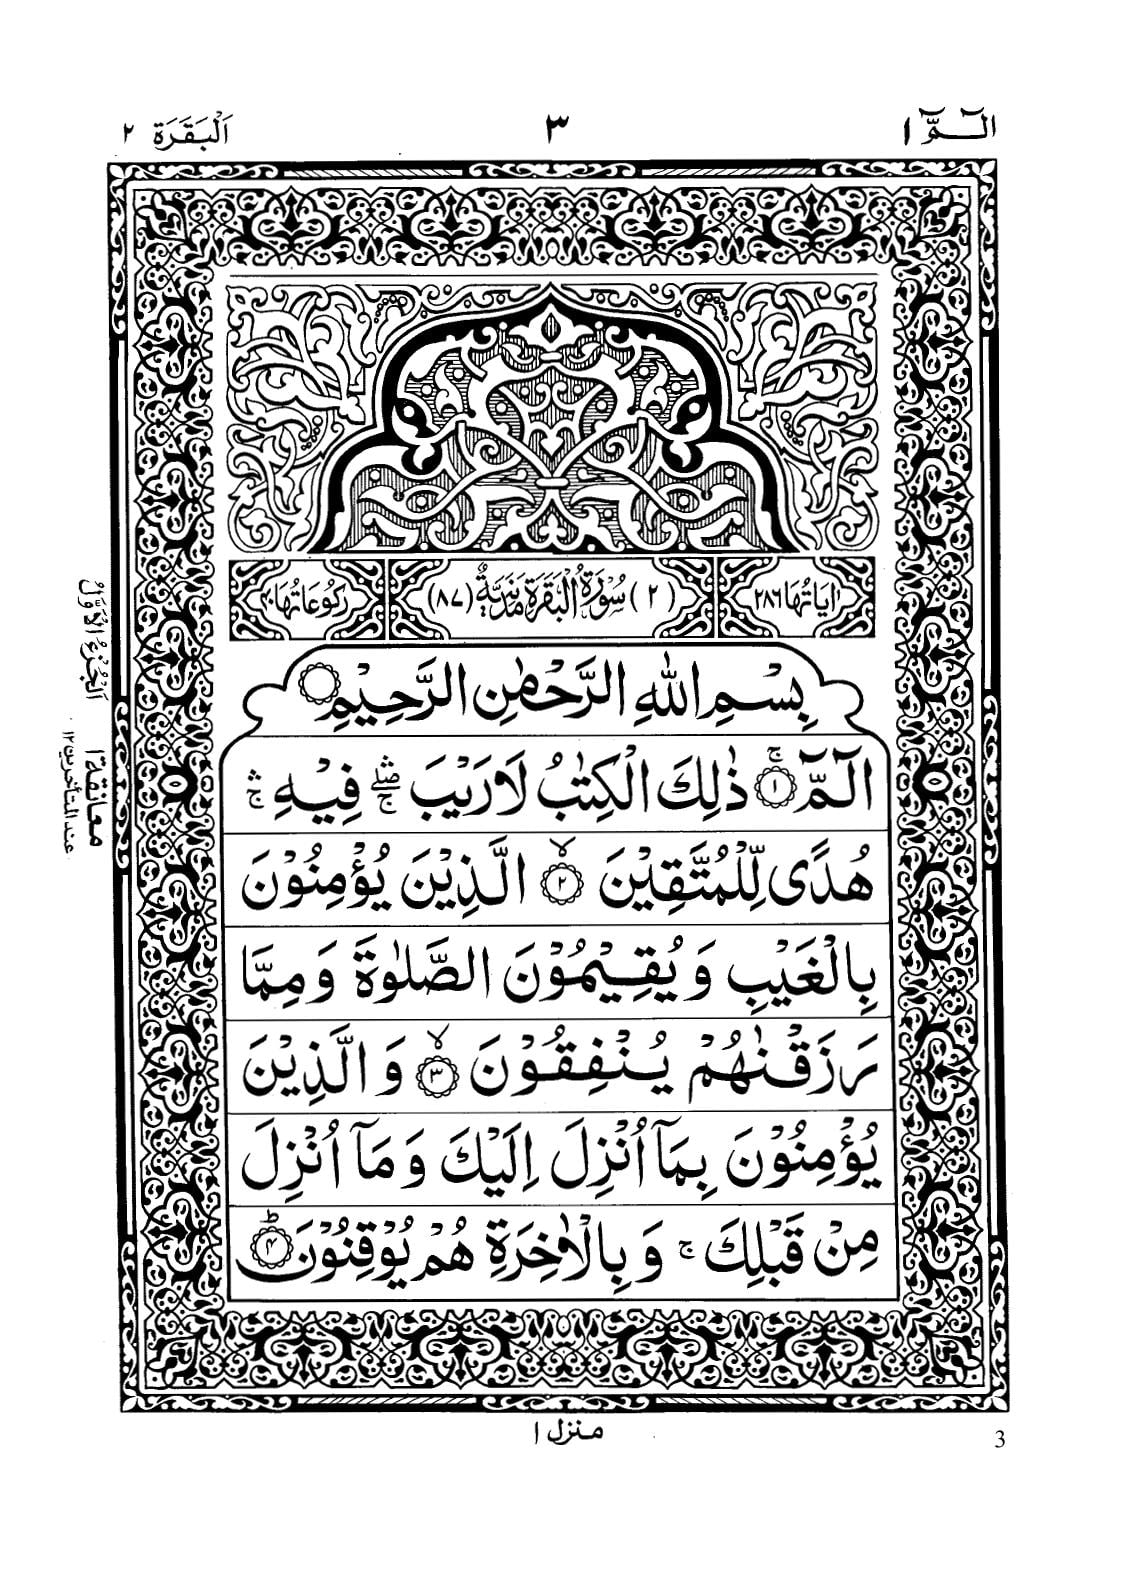 الٓـمّٓ ١
٣
اَلْبَقَرَة ٢
اٰيَاتُهَا ٢٨٦
(٢) سُوْرَةُ الْبَقَرَةِ مَدَنِيَّةٌ (٨٧)
رُكُوْعَاتُهَا ٤٠
بِسْمِ اللّٰهِ الرَّحْمٰنِ الرَّحِيْمِ
الٓـمّٓ ۚ﴿١﴾ ذٰلِكَ الْكِتٰبُ لَا رَيْبَ ۛۖۚ فِيْهِ ۛۚ
هُدًى لِّلْمُتَّقِيْنَ ۙ﴿٢﴾ الَّذِيْنَ يُؤْمِنُوْنَ
بِالْغَيْبِ وَ يُقِيْمُوْنَ الصَّلٰوةَ وَ مِمَّا
رَزَقْنٰهُمْ يُنْفِقُوْنَ ۙ﴿٣﴾ وَ الَّذِيْنَ
يُؤْمِنُوْنَ بِمَآ اُنْزِلَ اِلَيْكَ وَ مَآ اُنْزِلَ
مِنْ قَبْلِكَ ۚ وَ بِالْاٰخِرَةِ هُمْ يُوْقِنُوْنَ ؕ﴿٤﴾
اَلْجُزْءُ الْاَوَّلُ
معانقة ١
عند المتأخرين ١٢
منزل ١
3